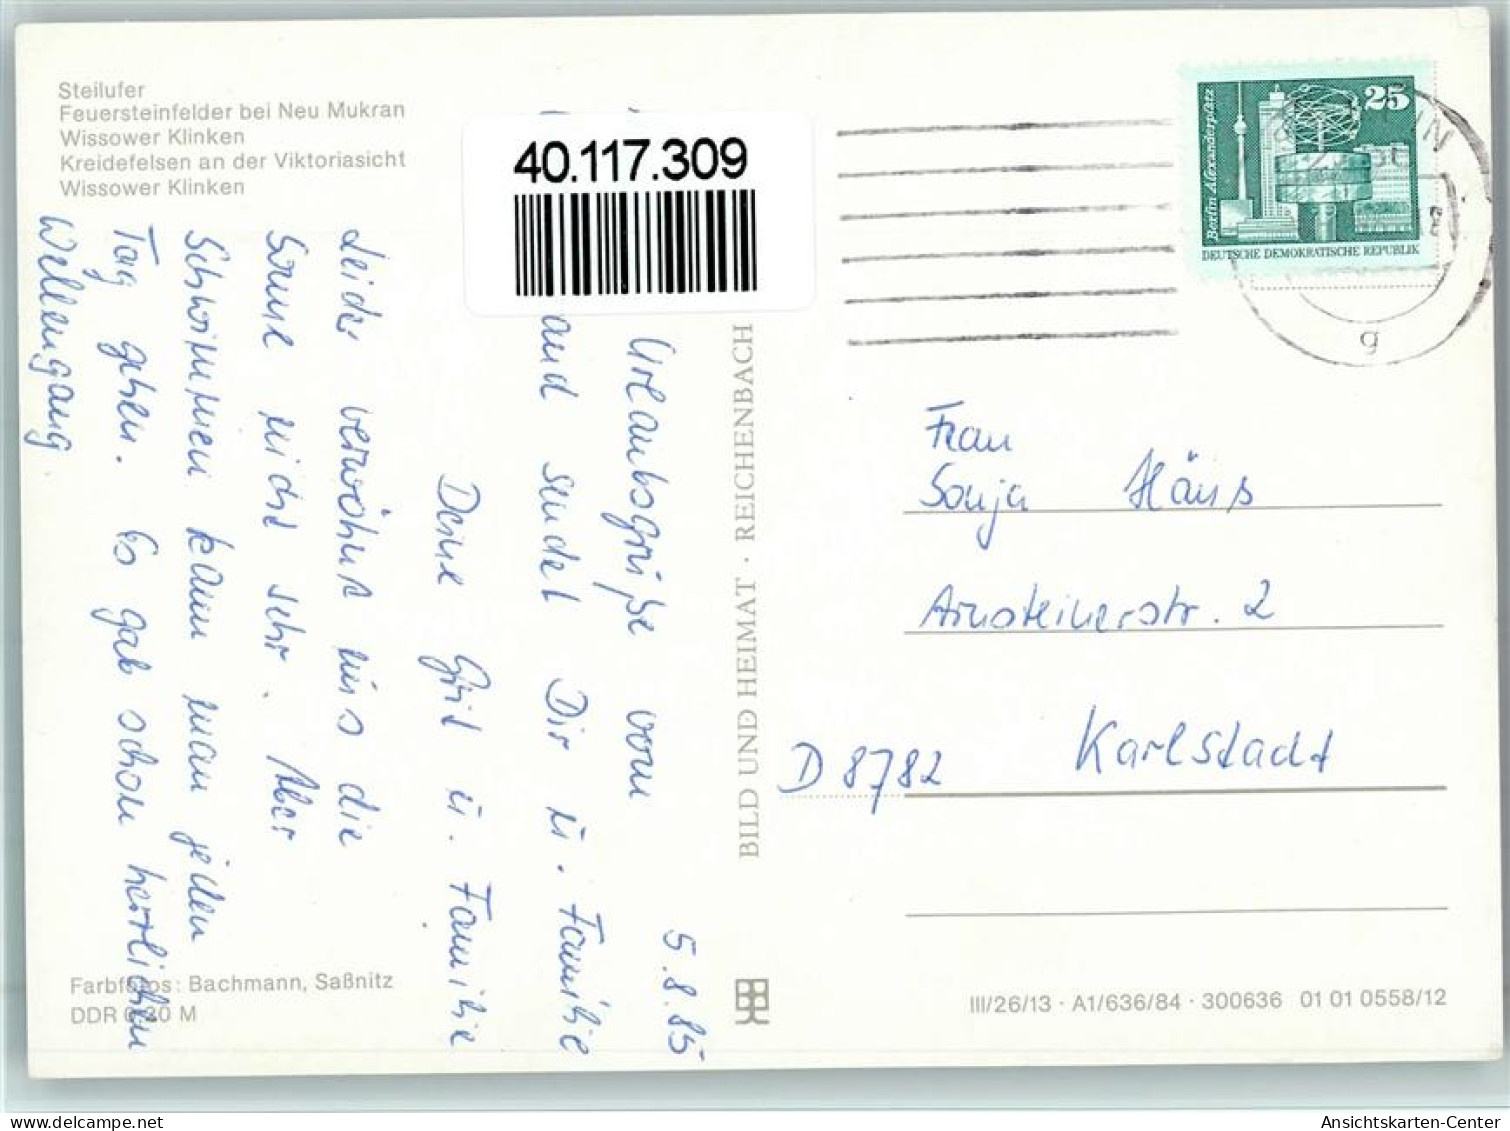 Steilufer
Feuersteinfelder bei Neu Mukran
Wissower Klinken
Kreidefelsen an der Viktoriasicht
Wissower Klinken
40.117.309
5.8.85
Urlaubsgrüße vom
and sendet Dir u. Familie
Deine Gril u. Familie
Leider verwöhnt uns die
Sonne nicht sehr. Aber
Schwimmen kann man jeden
Tag gehen. Es gab schon herrlichen
Wellengang
Farbfotos: Bachmann, Saßnitz
DDR 0,20 M
BILD UND HEIMAT · REICHENBACH
25
Berlin-Alexanderplatz
DEUTSCHE DEMOKRATISCHE REPUBLIK
g
Frau
Sonja Häus
Arnsteinerstr. 2
D 8782 Karlstadt
III/26/13 · A1/636/84 · 300636 01 01 0558/12
oldthing.de
Ansichtskarten-Center